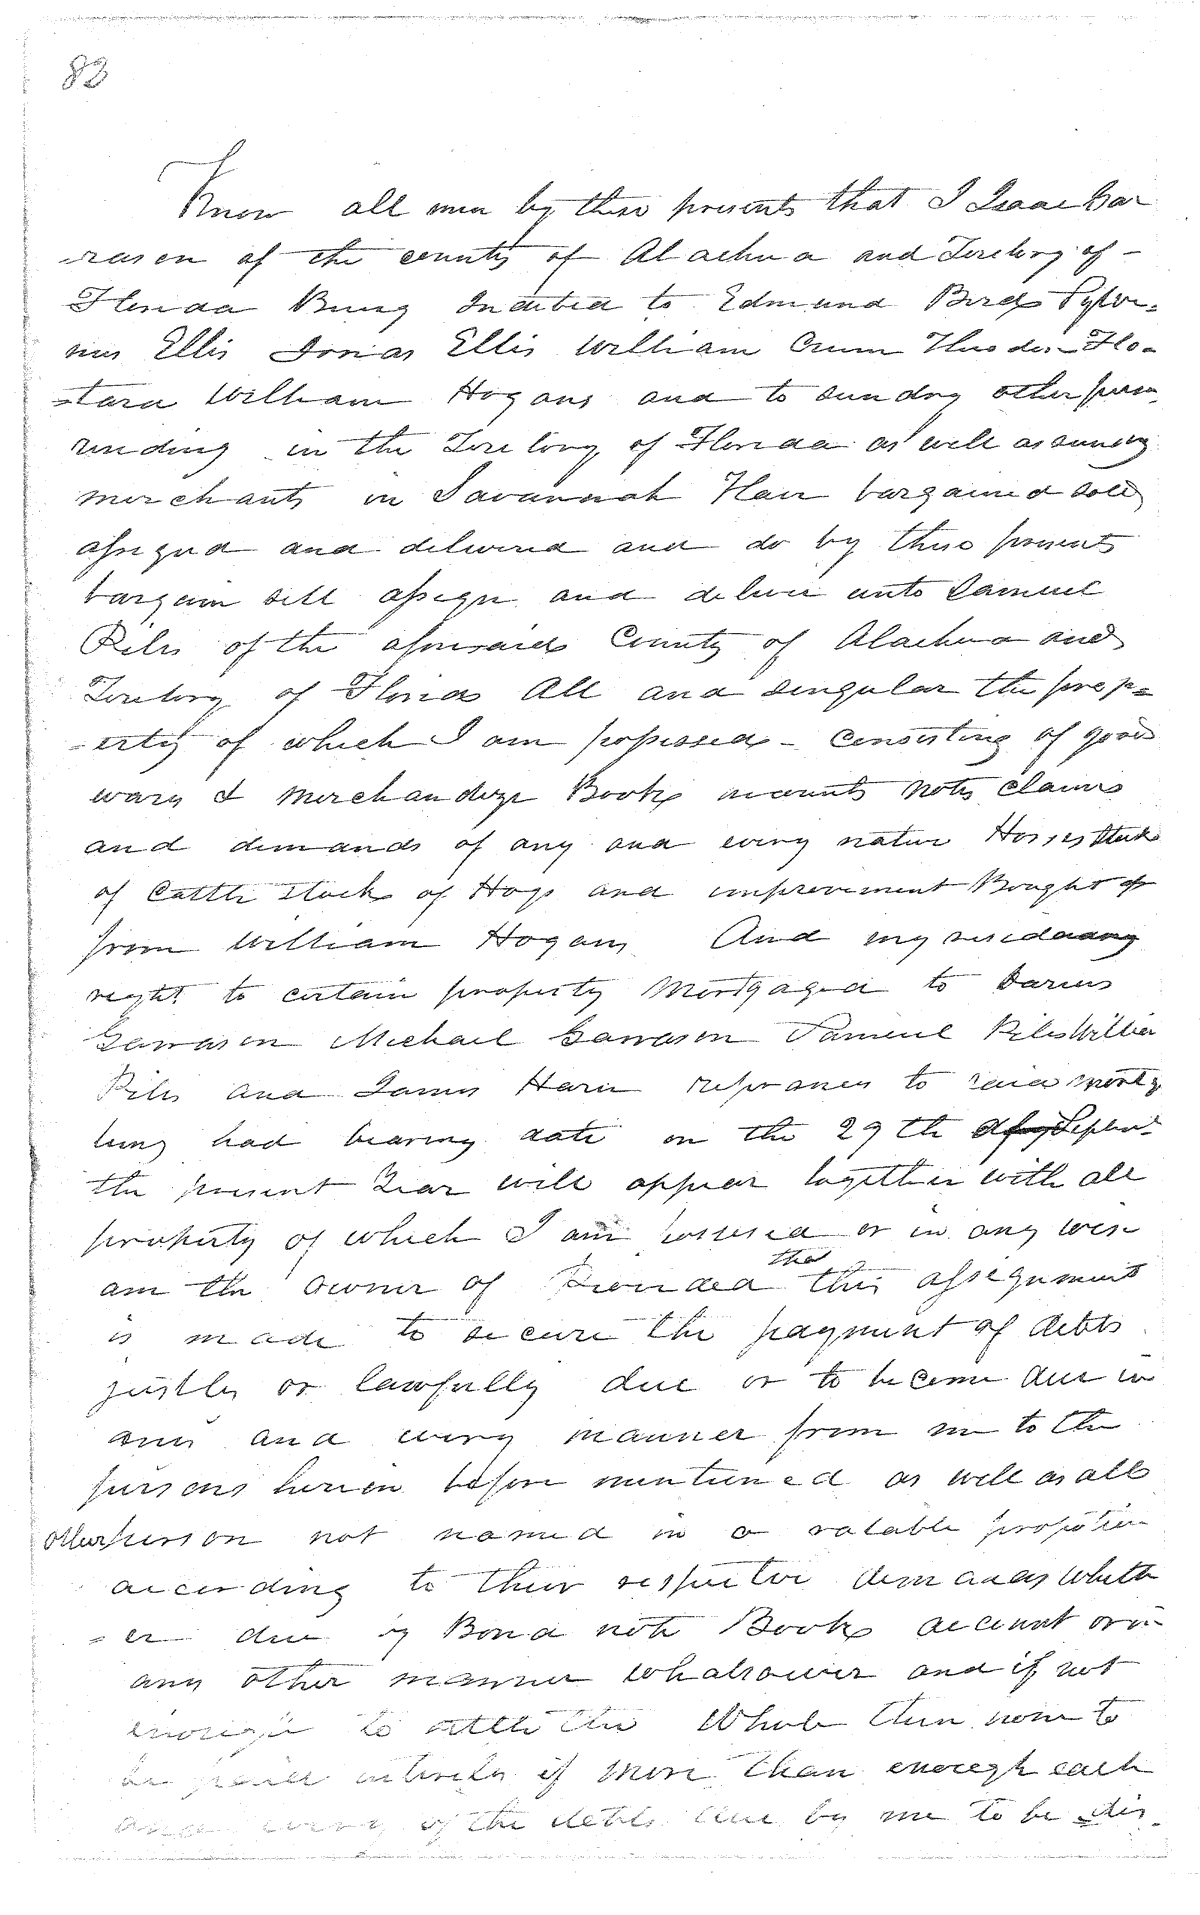 83
Know all men by these presents that I Isaac Gar
rason of the county of Alachua and Teretory of -
Florida Being Indebted to Edmund Bird Sylve-
nus Ellis Ellis William Crum Flo-
William Hogans and to sundry other person
residing in the Teretory of Florida as well as sundry
merchants in Savannah Have bargained sold
assigned and delivered and do by these presents
bargain sell assign and deliver unto Samuel
Piles of the aforesaid County of Alachua and
Teretory of Florida All and singular the prop-
-erty of which I am possessed - Consisting of goods
wares & Merchandize Books accounts Notes Claims
and demands of any and every nature Horses Stock
of Cattle Stock of Hogs and improvement Bought of
from William Hogans And my
right to certain property Mortgaged to Darius
Garrason Michael Garrason Samuel Piles William
Piles and James referances to said mortg
being had bearing date on the 29th Septbr
the present Year will appear together with all
property of which I am possessed or in any wise
am the owner of Provided that this assignment
is made to secure the payment of debts
justly or lawfully due or to become due in
any and every manner from me to the
persons herein before mentioned as well as all
other person not named in a ratable propotion
according to their respective demands wheth
-er due by Bond note Book account or in
any other manner whatsoever and if not
enough to settle the Whole then none to
be paid entirely if more than enough each
and every of the debts due by me to be dis-